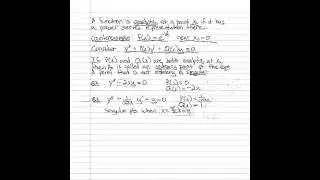 A function is analytic at a point x₀ if it has
a power series representation there.
counterexample f(x)=e^ near x₀=0
Consider y"+P(x)y'+Q(x)y=0
If P(x) and Q(x) are both analytic at x₀
then x₀ is called an ordinary point of the ODE
A point that is not ordinary is singular
Ex y"-2xy=0 P(x)=0
Q(x)=-2x
Ex y"+ y'+y=0 P(x)=
Q(x)=1
Singular pts when x=